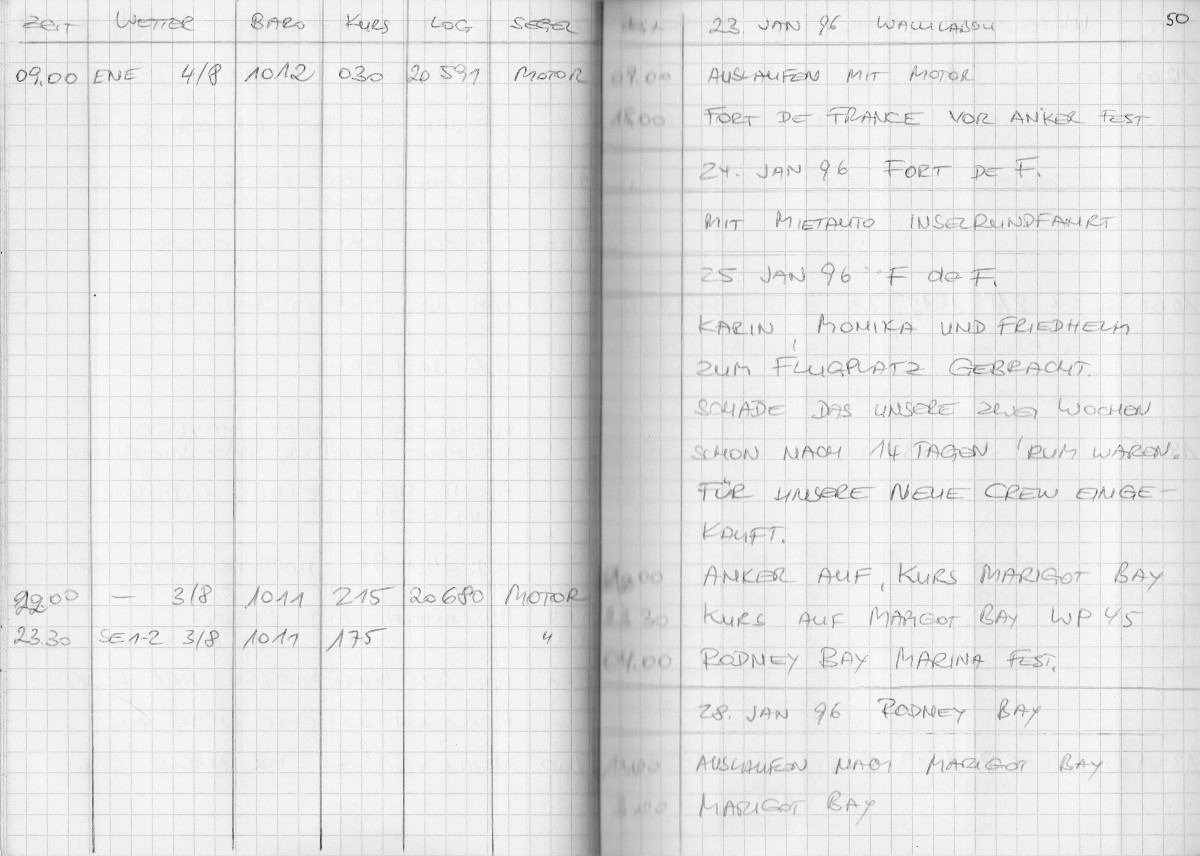 ZEIT WETTER BARO KURS LOG SEGEL
09.00 ENE 4/8 1012 030 20 591 MOTOR
2200 — 3/8 1011 215 20680 MOTOR
23.30 SE1-2 3/8 1011 175 "
50
23. JAN 96 WALLILABOU
09.00 AUSLAUFEN MIT MOTOR
18.00 FORT DE FRANCE VOR ANKER FEST
24. JAN 96 FORT DE F.
MIT MIETAUTO INSELRUNDFAHRT
25. JAN 96 F de F.
KARIN, MONIKA UND FRIEDHELM
ZUM FLUGPLATZ GEBRACHT.
SCHADE DAS UNSERE ZWEI WOCHEN
SCHON NACH 14 TAGEN 'RUM WAREN.
FÜR UNSERE NEUE CREW EINGE-
KAUFT.
ANKER AUF, KURS MARIGOT BAY
23.30 KURS AUF MARIGOT BAY WP 45
04.00 RODNEY BAY MARINA FEST.
28. JAN 96 RODNEY BAY
AUSLAUFEN NACH MARIGOT BAY
MARIGOT BAY